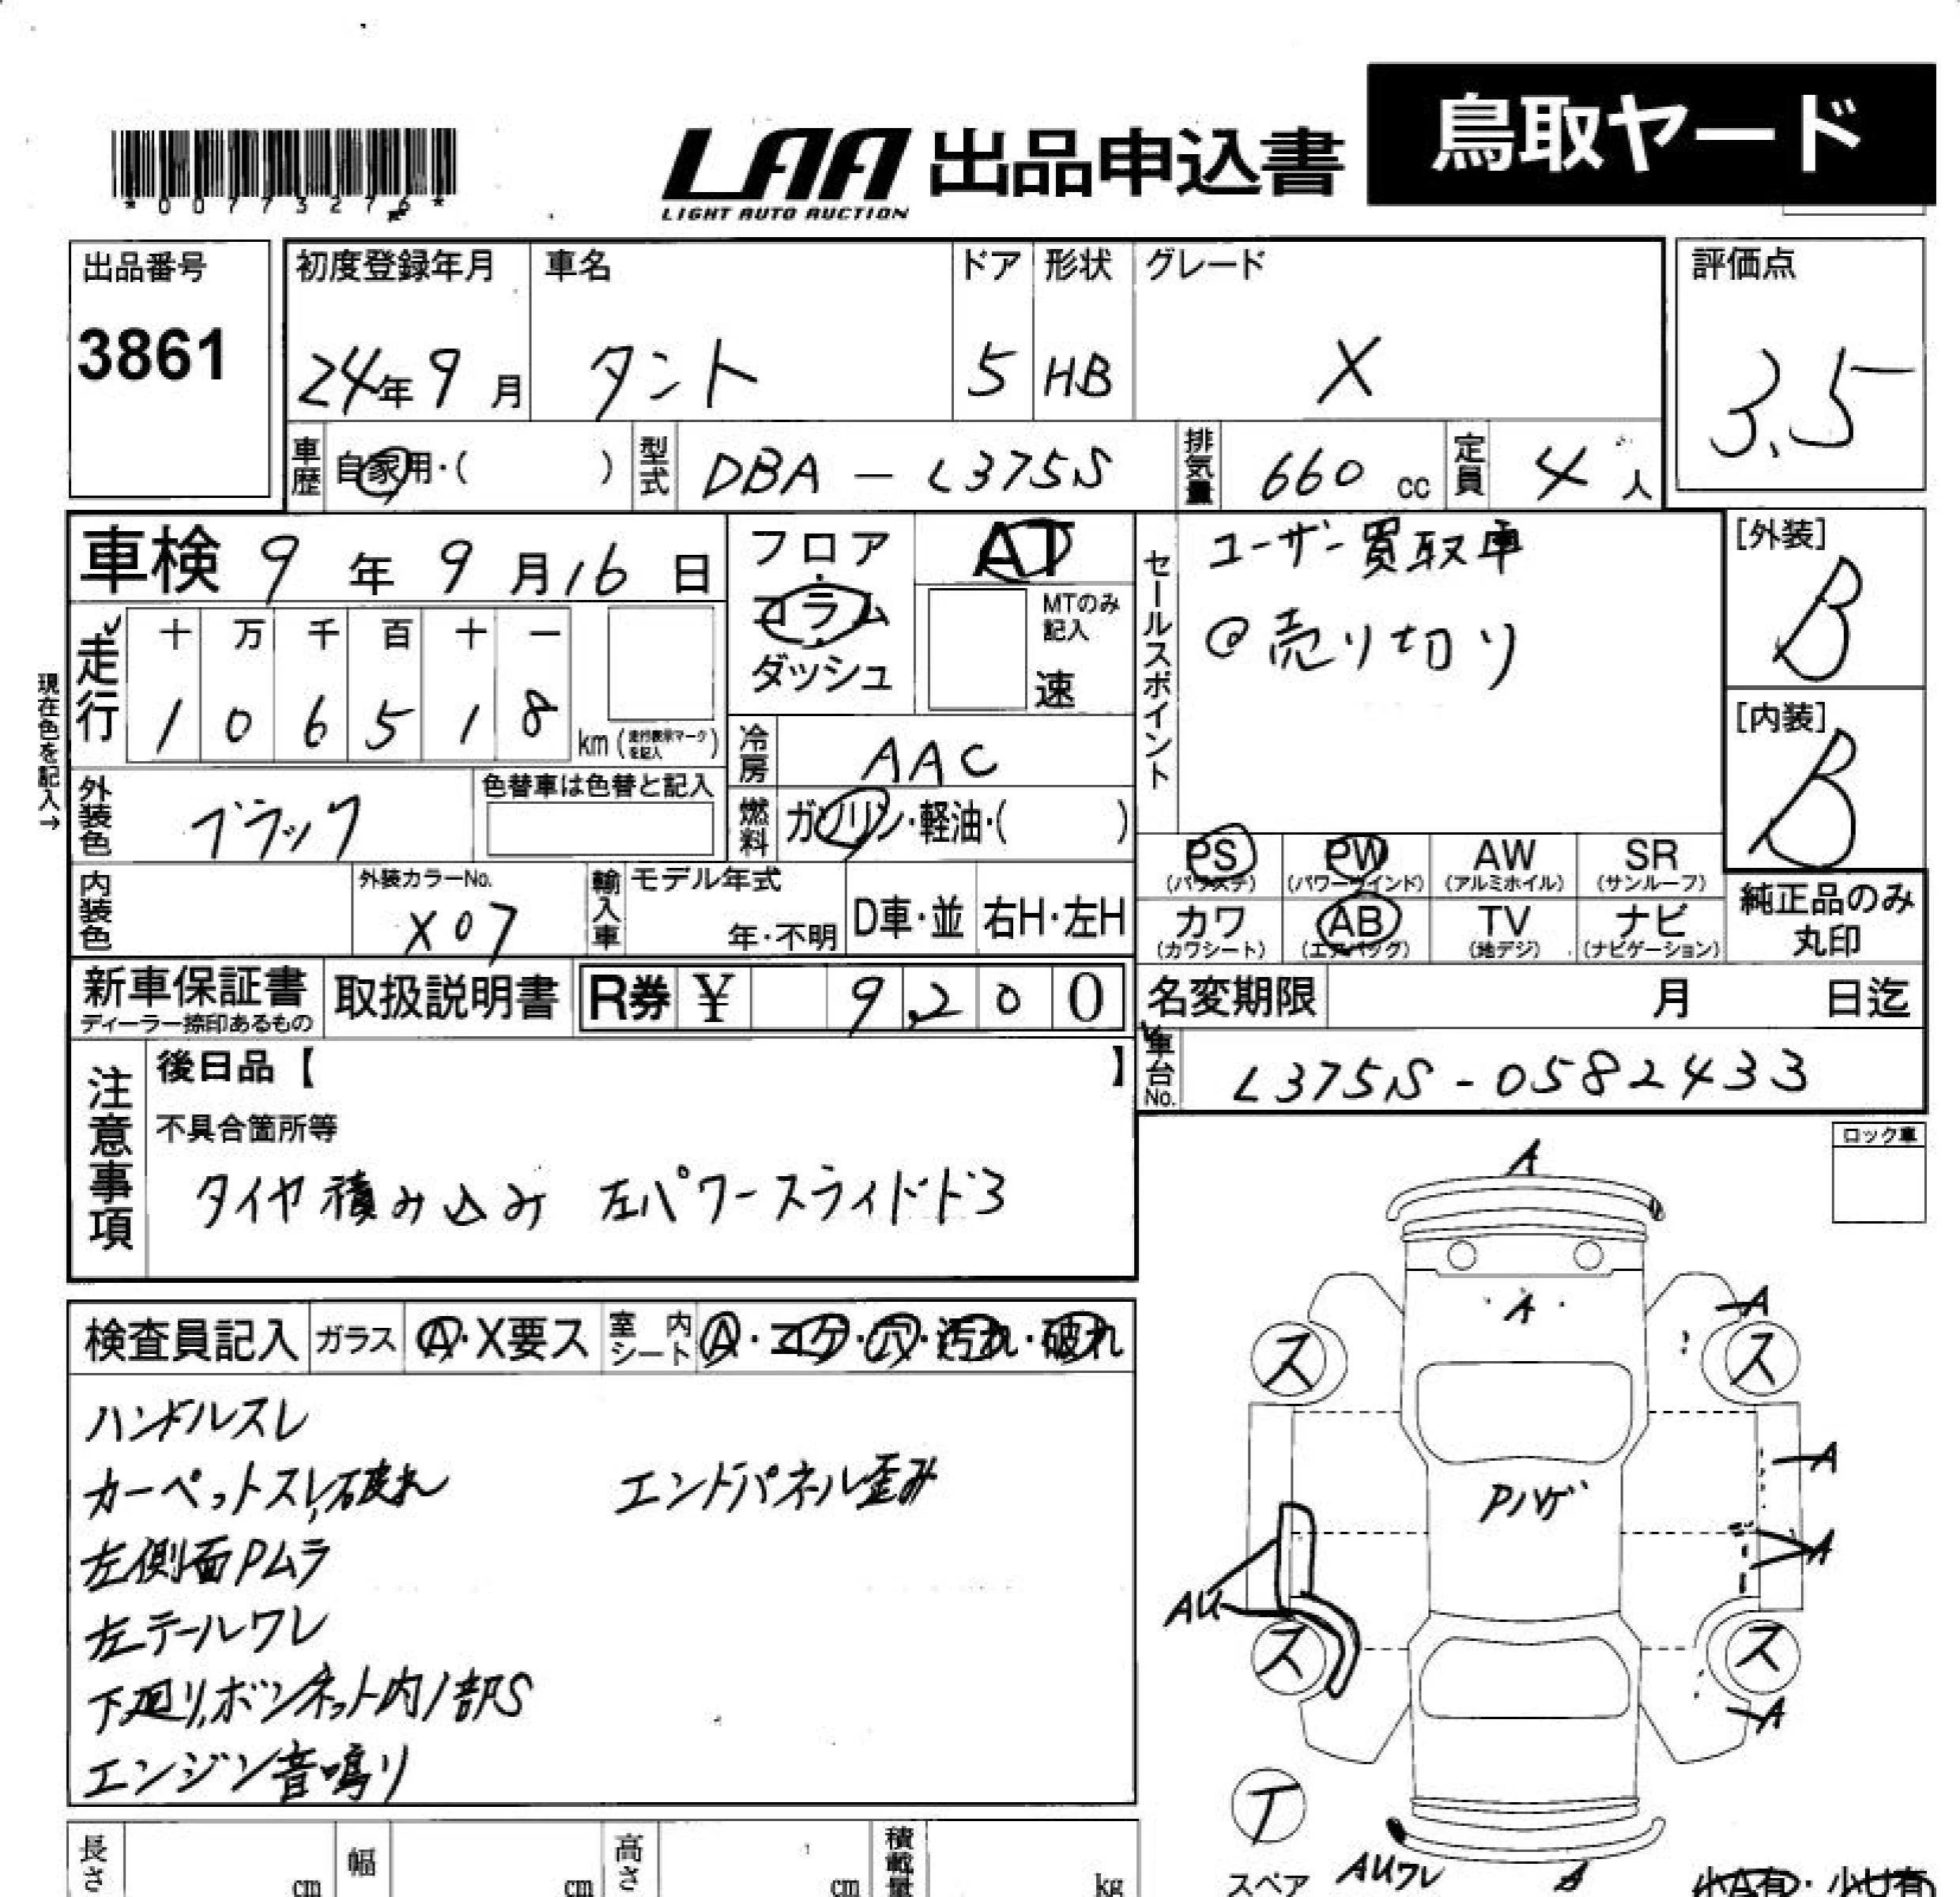 鳥取ヤード
LAA 出品申込書
LIGHT AUTO AUCTION
*00773276*
出品番号 3861
初度登録年月 24年9月
車名 タント
ドア 5
形状 HB
グレード X
評価点 3.5
車歴 自家用・( )
型式 DBA-L375S
排気量 660 cc
定員 4人
車検 9年9月16日
フロア・コラム・ダッシュ
AT
MTのみ記入 速
セールスポイント
ユーザー買取車
@売り切り
[外装] B
[内装] B
現在色を記入→
走行 十 万 千 百 十 一
1 0 6 5 1 8 km (走行表示マークを記入)
冷房 AAC
燃料 ガソリン・軽油・( )
外装色 ブラック
色替車は色替と記入
内装色
外装カラーNo. X07
輸入車 モデル年式 年・不明
D車・並 右H・左H
PS (パワステ) PW (パワーウインド) AW (アルミホイル) SR (サンルーフ)
カワ (カワシート) AB (エアバッグ) TV (地デジ) ナビ (ナビゲーション)
純正品のみ丸印
新車保証書 ディーラー捺印あるもの
取扱説明書
R券 ¥ 9,200
名変期限 月 日迄
車台No. L375S-0582433
注意事項
後日品【 】
不具合箇所等
タイヤ積み込み 左パワースライドドア
ロック車
検査員記入 ガラス A・X要ス 室内シート A・コゲ・穴・汚れ・破れ
ハンドルスレ
カーペットスレ,破れ エンドパネル歪み
左側面Pムラ
左テールワレ
下廻り,ボンネット内1部S
エンジン音鳴り
A
A
A
ス ス
A
Pハゲ
A
AU
ス ス
A
T
スペア
AUワレ
A
長さ cm 幅 cm 高さ cm 積載量 kg